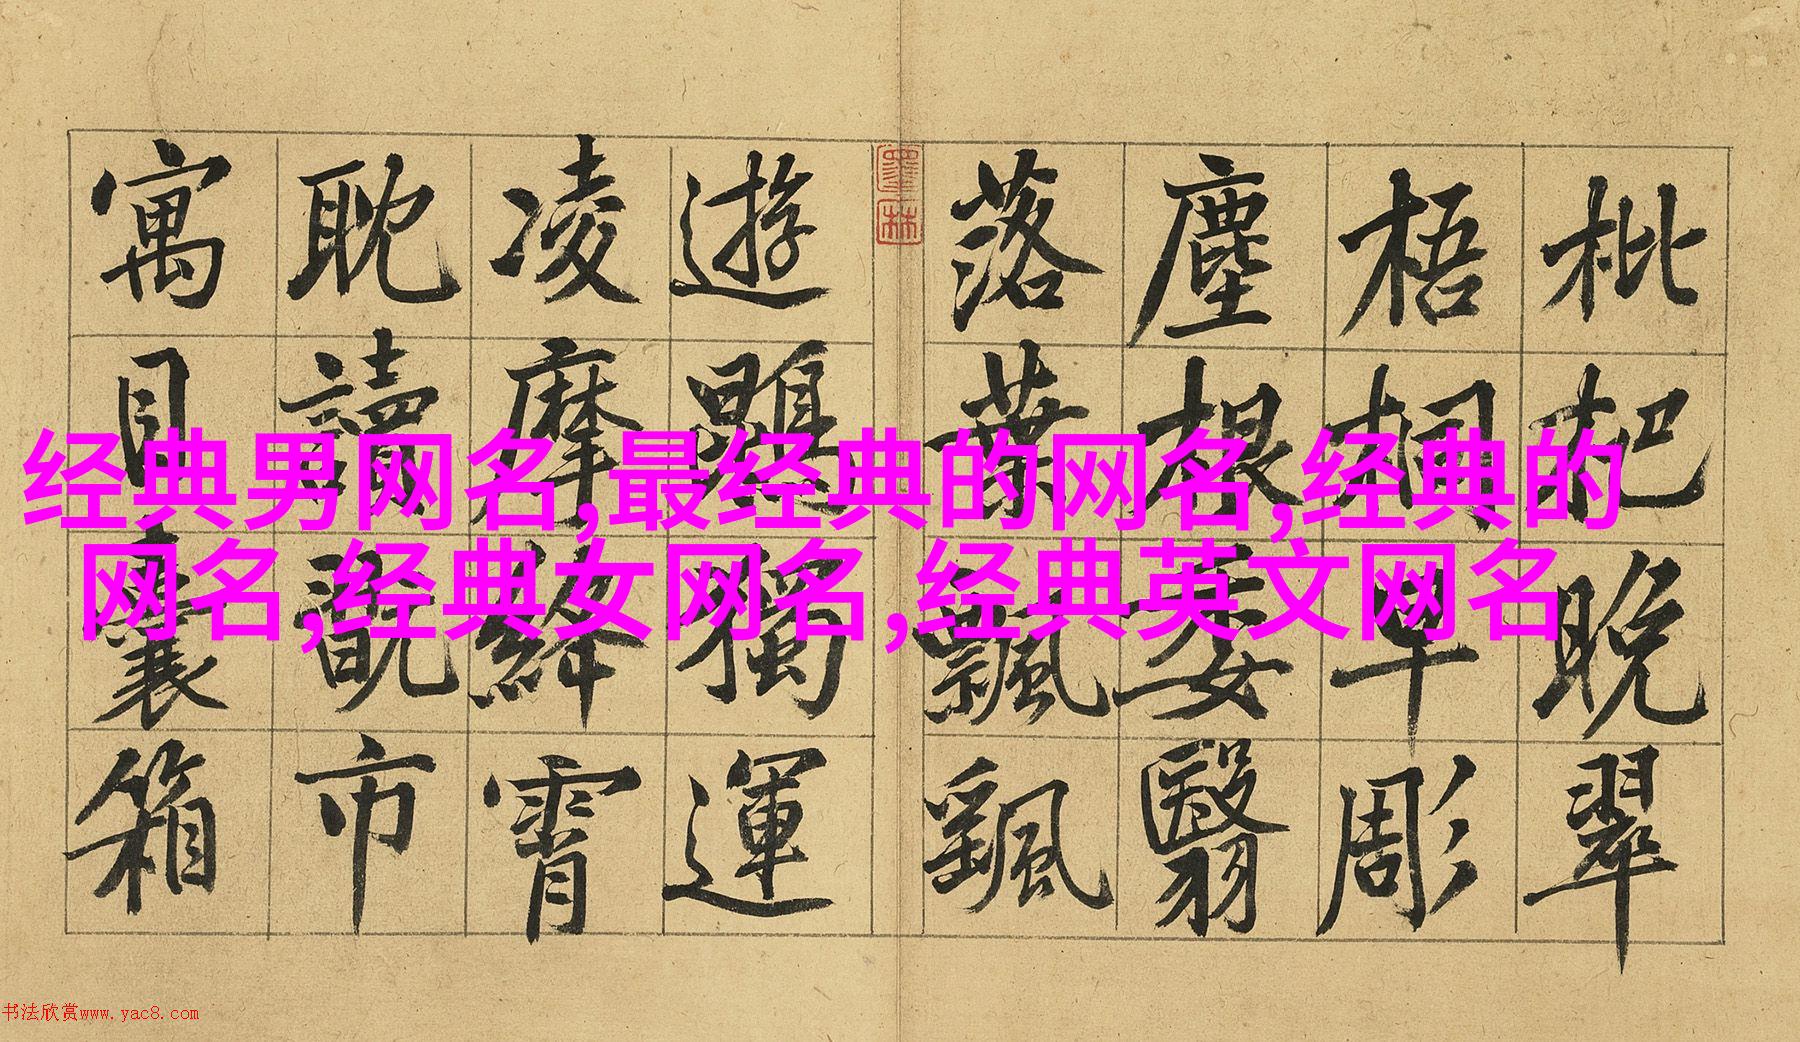 枇杷晚翠
梧桐早彫
塵根委翳
落葉飄颻
遊鵾獨運
凌摩絳霄
耽讀翫市
寓目囊箱
墨林
经典男网名,最经典的网名,经典的
网名,经典女网名,经典英文网名
书法欣赏www.yac8.com